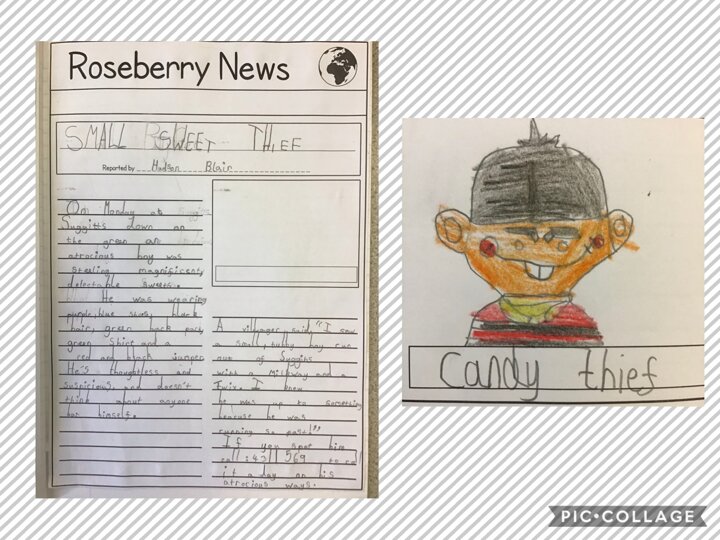 Roseberry News
SMALL SWEET THIEF
Reported by Hudson Blair
On Monday at
Suggitts down on
the green an
atrocious boy was
stealing magnificent,
delectable sweets.
He was wearing
purple, blue shoes, black
hair, green back pack,
green shirt and a
red and black jumper.
He's thoughtless and
suspicious, and doesn't
think about anyone
but himself.
A villager said, "I saw
a small, tubby boy run
out of Suggitts
with a Milkyway and a
Twix. I knew
he was up to something
because he was
running so fast!"
If you spot him
call :4311 569 to call
it a day on his
atrocious ways.
Candy thief
PIC•COLLAGE